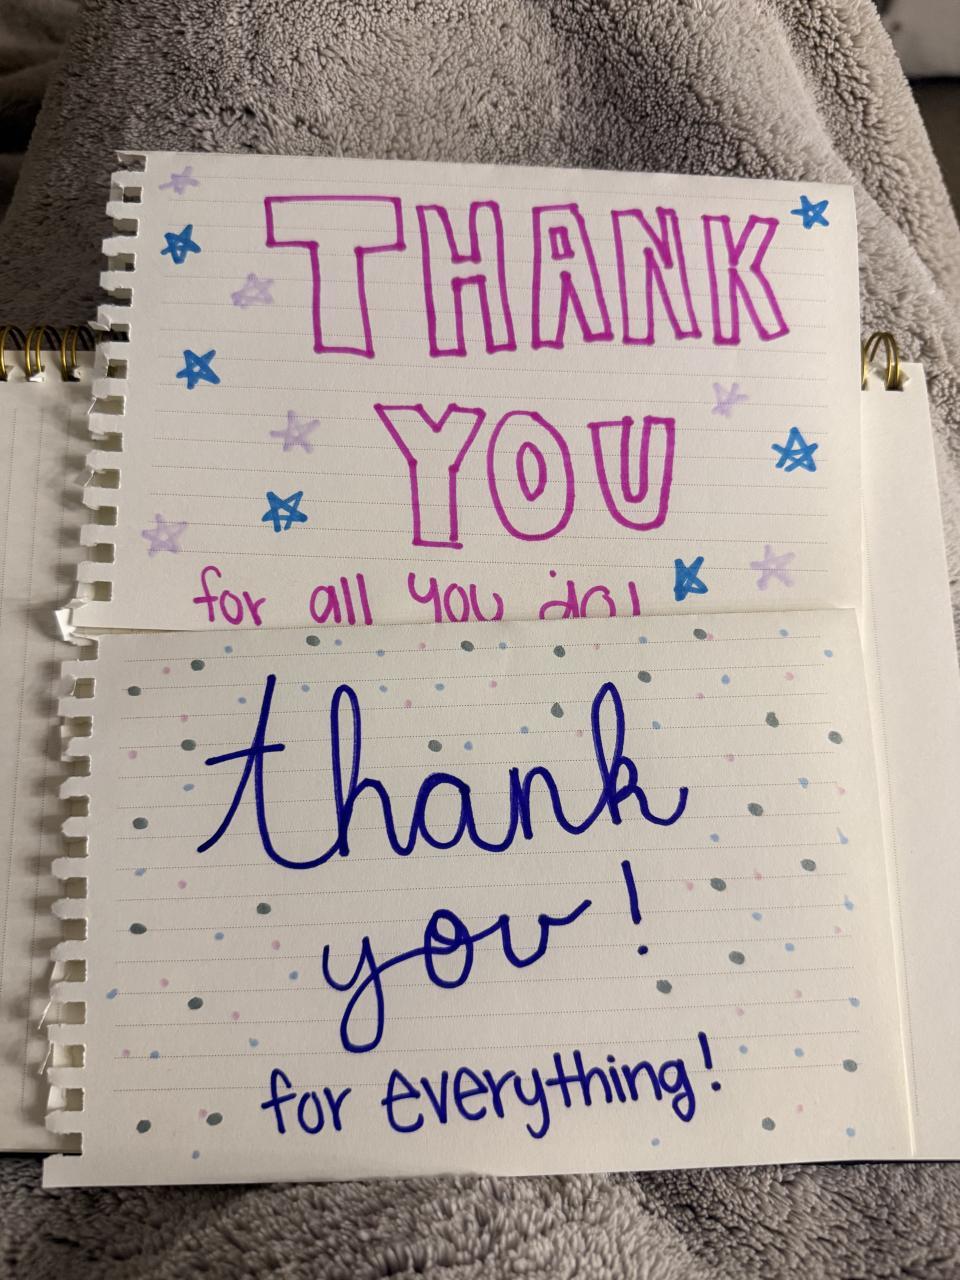 THANK
YOU
for all you do!
thank
you!
for everything!